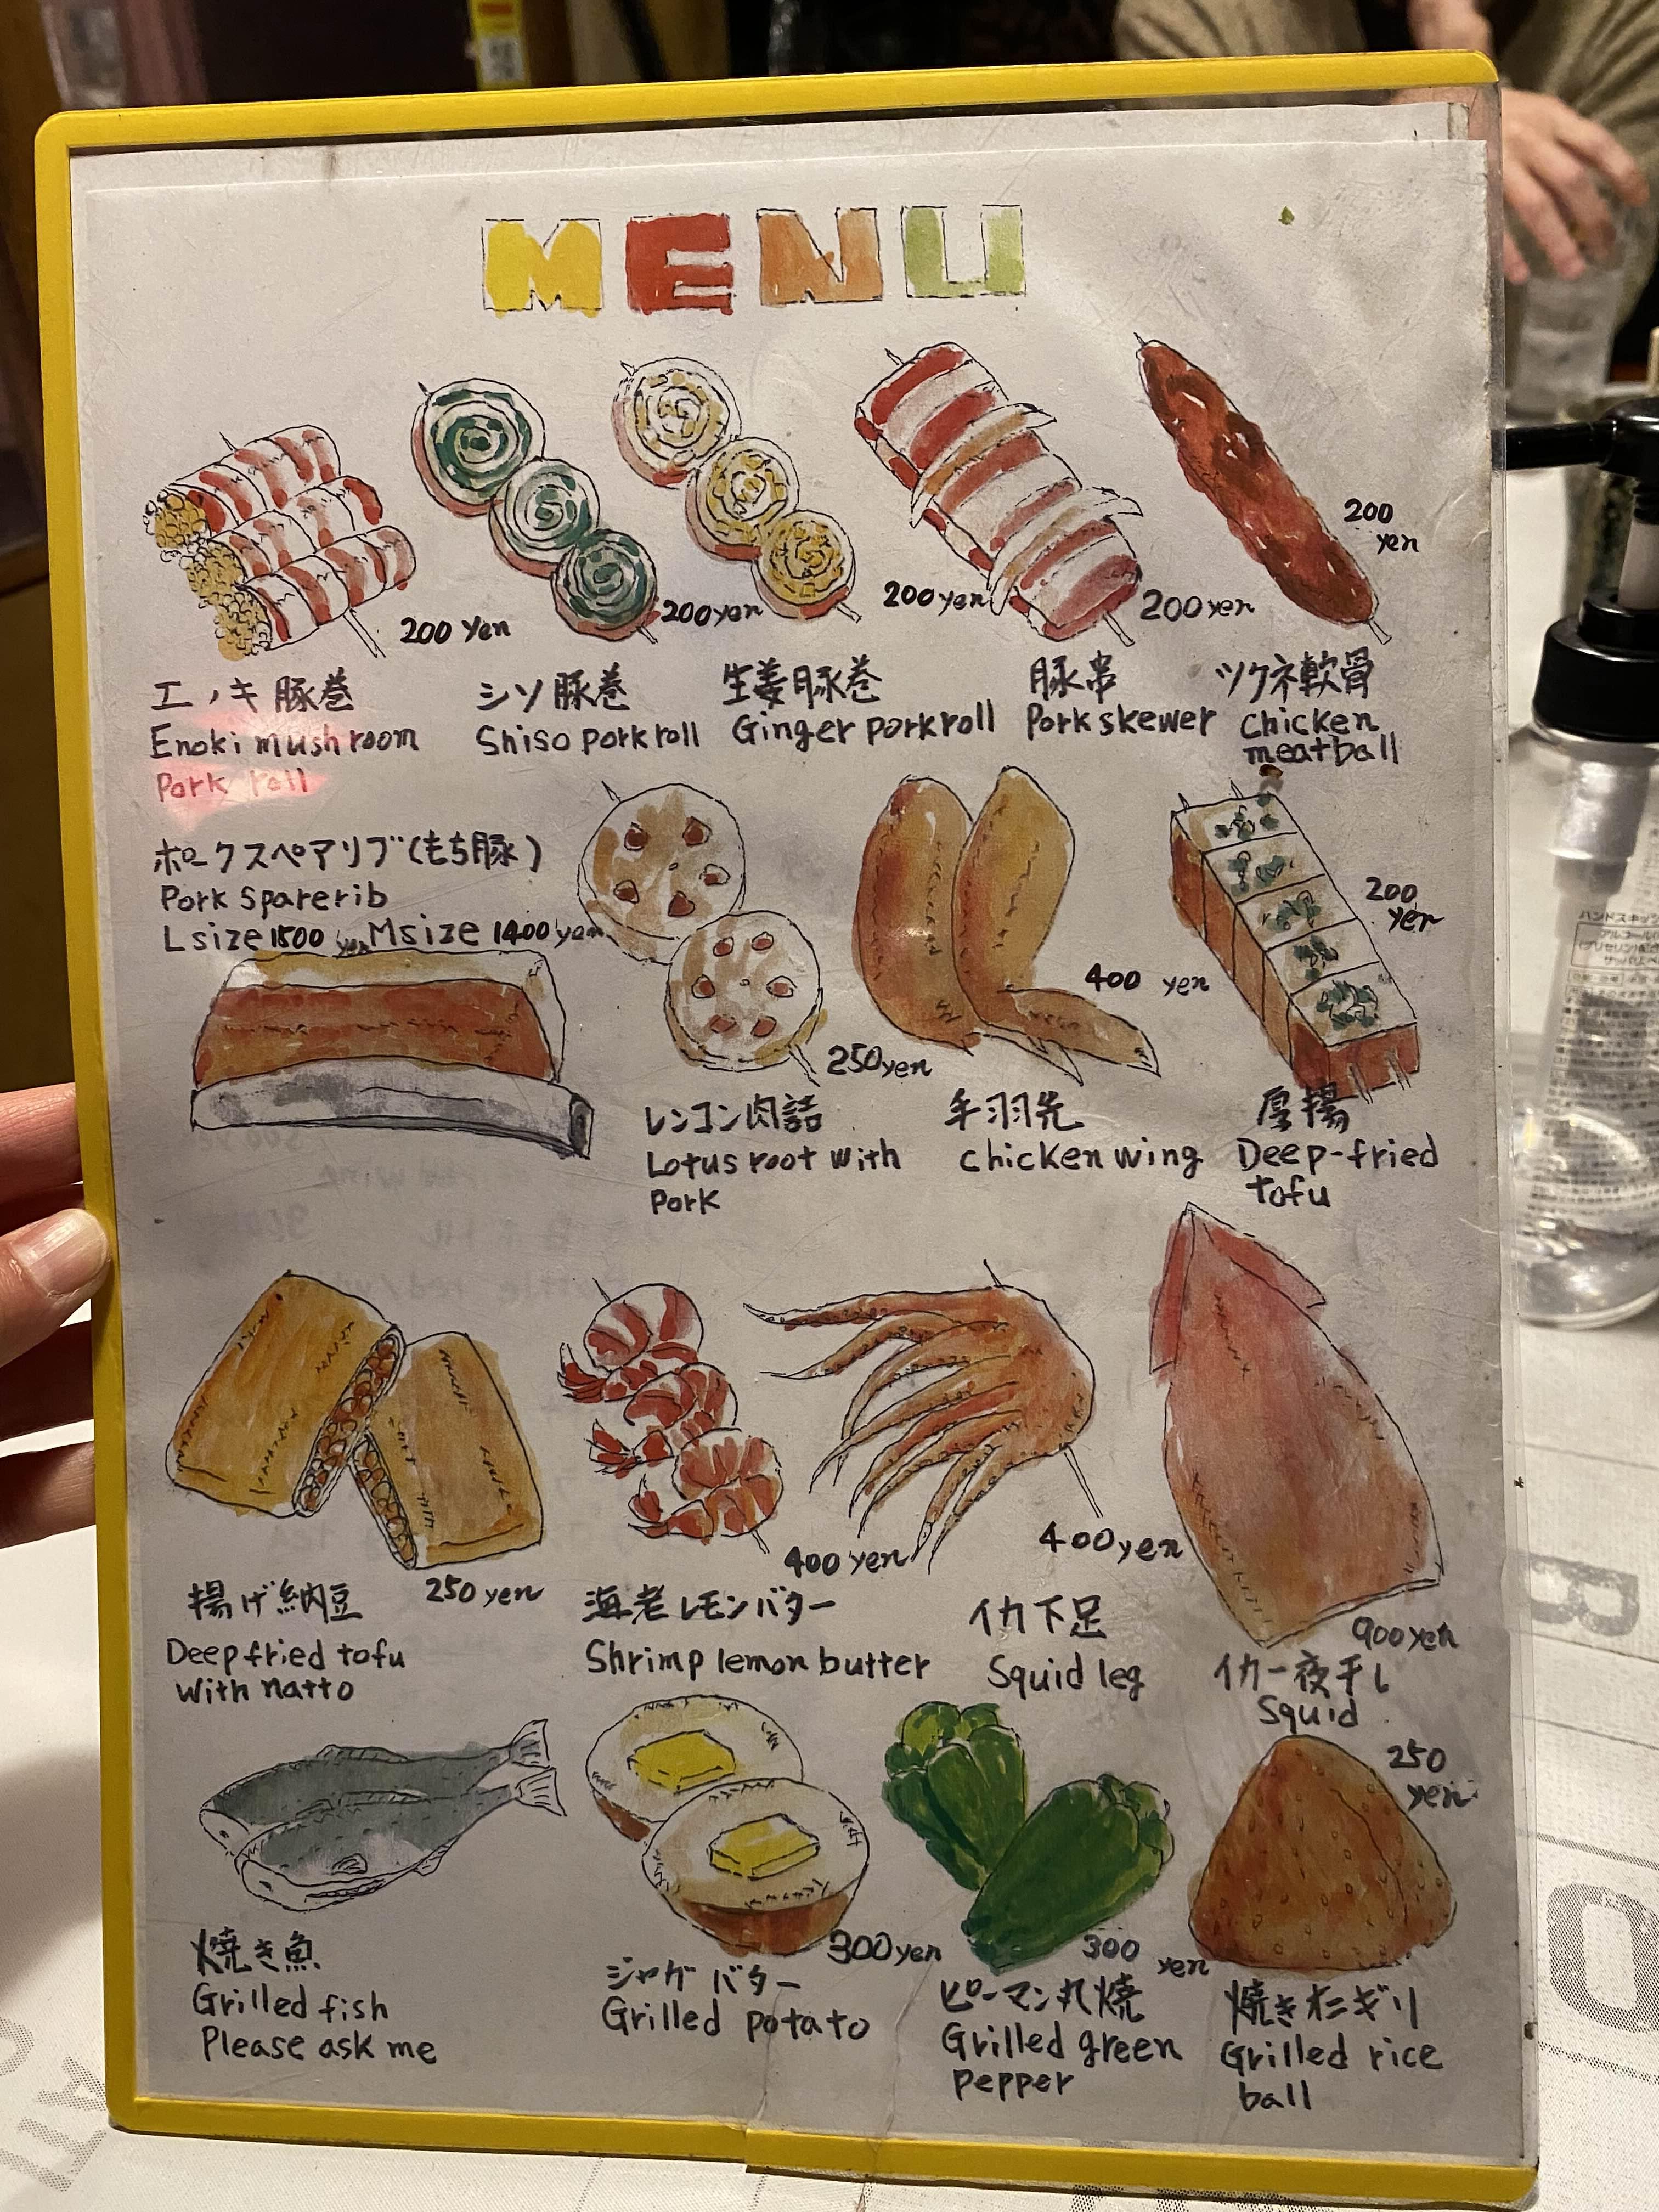 MENU
200 yen
200 yen
200 yen
200 yen
200
yen
エノキ豚巻
Enoki mushroom
Pork roll
シソ豚巻
Shiso pork roll
生姜豚巻
Ginger pork roll
豚串
Pork skewer
ツクネ軟骨
Chicken
meatball
ポークスペアリブ(もち豚)
Pork sparerib
L size 1800 yen M size 1400 yen
250 yen
レンコン肉詰
Lotus root with
pork
400 yen
手羽先
chicken wing
200
yen
厚揚
Deep-fried
tofu
250 yen
揚げ納豆
Deep fried tofu
with natto
400 yen
海老レモンバター
Shrimp lemon butter
400 yen
イカ下足
Squid leg
900 yen
イカ一夜干し
Squid
焼き魚
Grilled fish
Please ask me
300 yen
ジャガバター
Grilled potato
300
yen
ピーマン丸焼
Grilled green
pepper
250
yen
焼きオニギリ
Grilled rice
ball